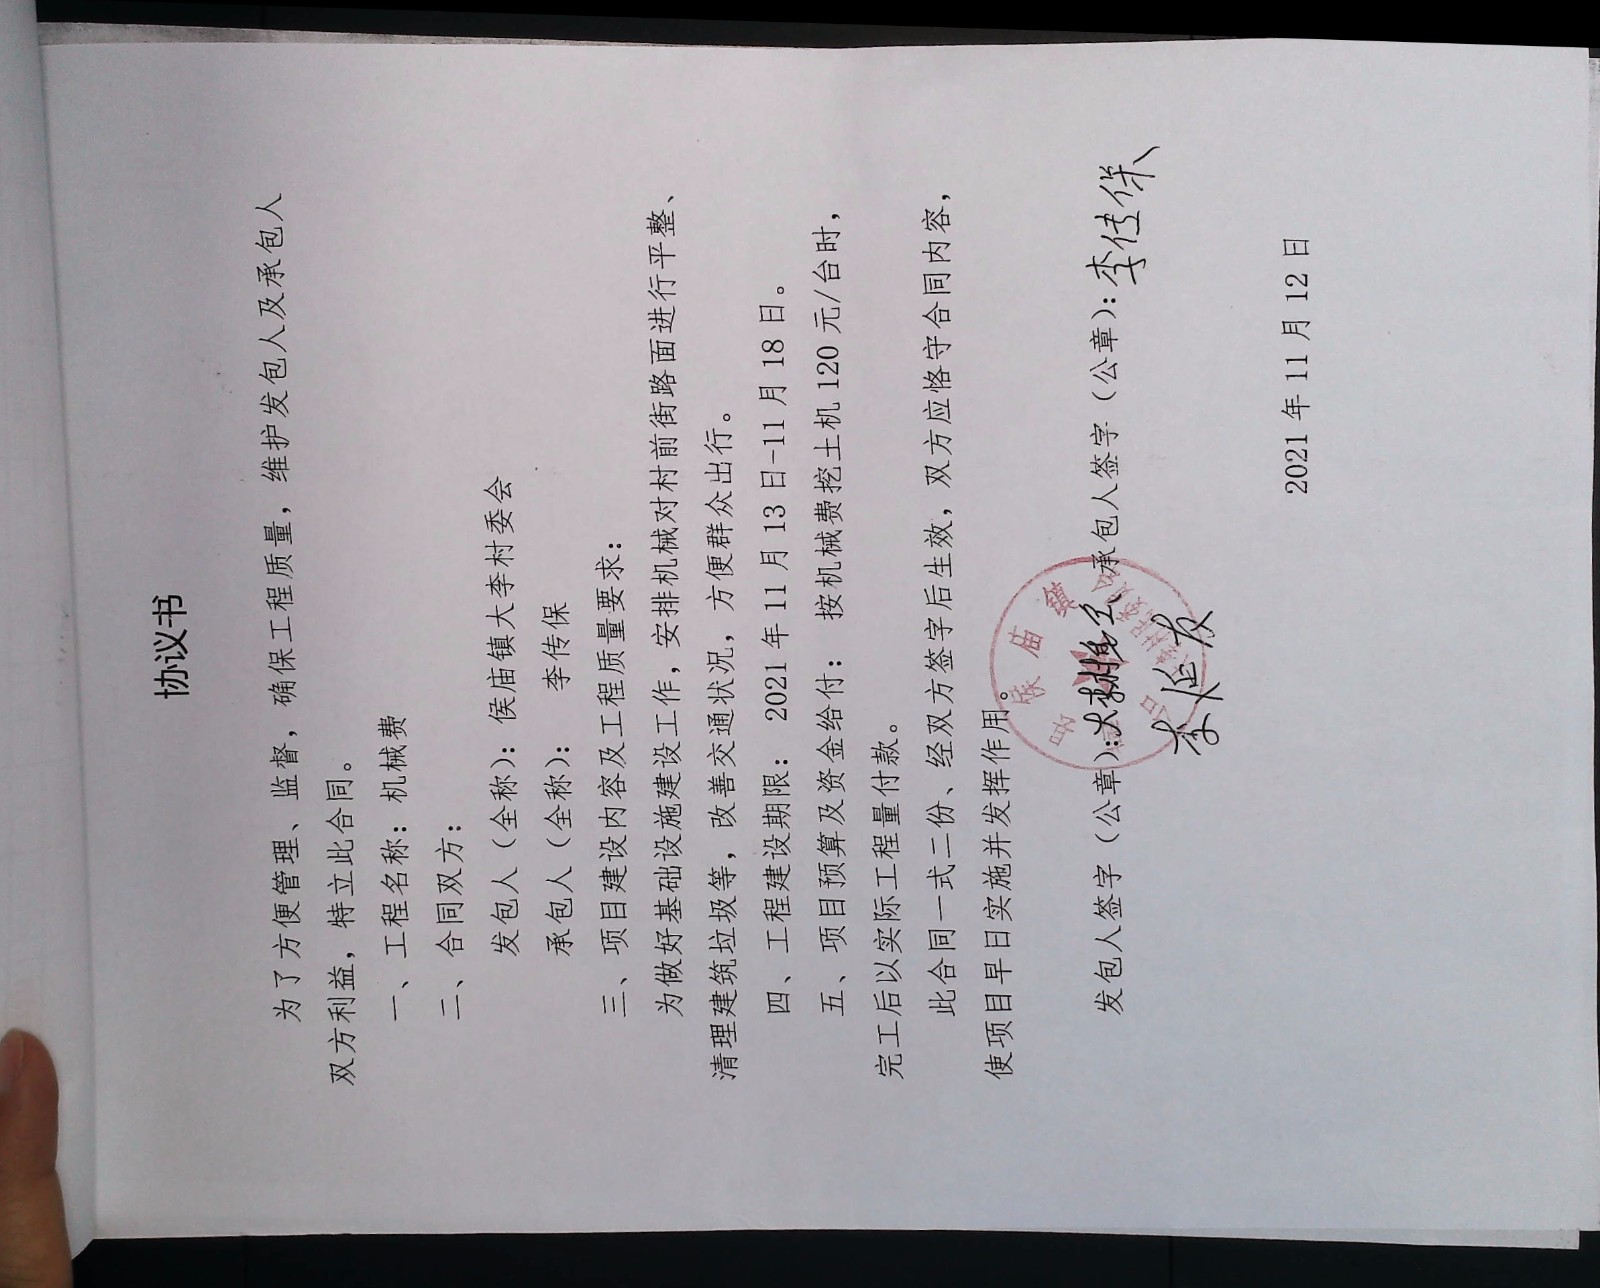 协议书
为了方便管理、监督，确保工程质量，维护发包人及承包人
双方利益，特立此合同。
一、工程名称：机械费
二、合同双方：
发包人（全称）：侯庙镇大李村委会
承包人（全称）： 李传保
三、项目建设内容及工程质量要求：
为做好基础设施建设工作，安排机械对村前街路面进行平整、
清理建筑垃圾等，改善交通状况，方便群众出行。
四、工程建设期限： 2021 年 11 月 13 日-11 月 18 日。
五、项目预算及资金给付： 按机械费挖土机 120 元/台时，
完工后以实际工程量付款。
此合同一式二份、经双方签字后生效，双方应恪守合同内容，
使项目早日实施并发挥作用。
发包人签字（公章）：大李村委会 承包人签字（公章）：李传保
2021 年 11 月 12 日